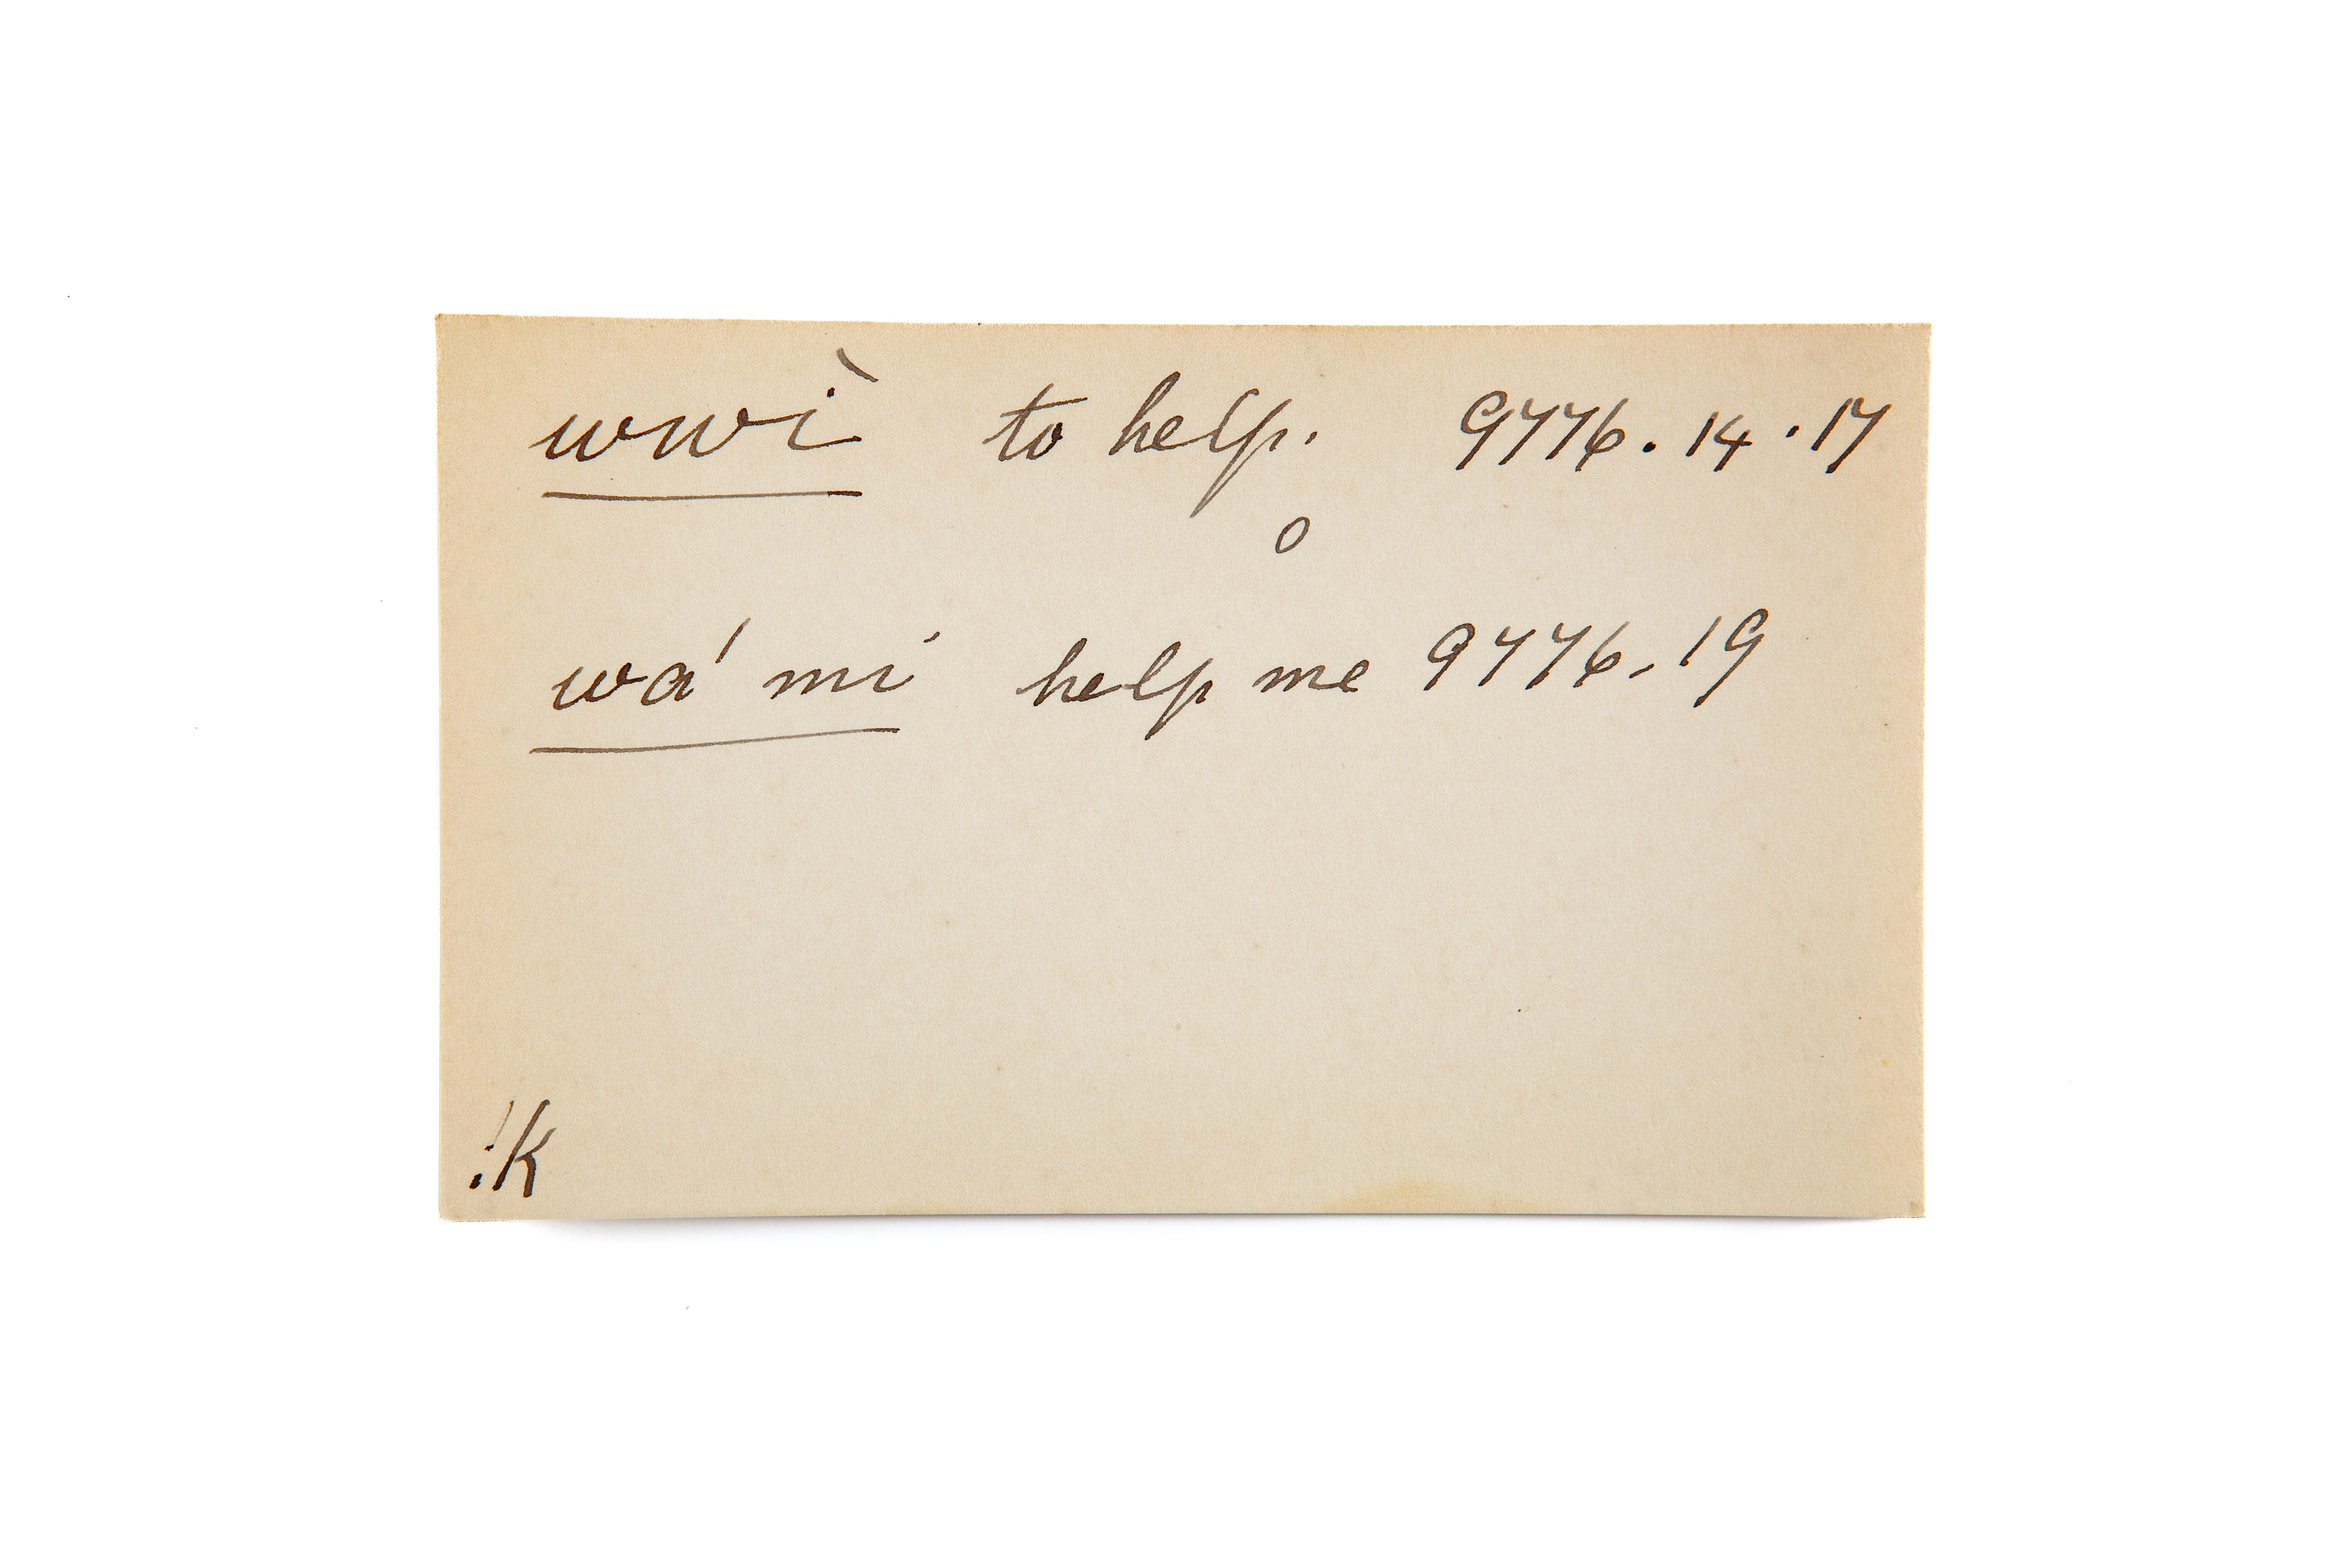 wwì to help. 9776.14.17
o
wá mi help me 9776.19
!k